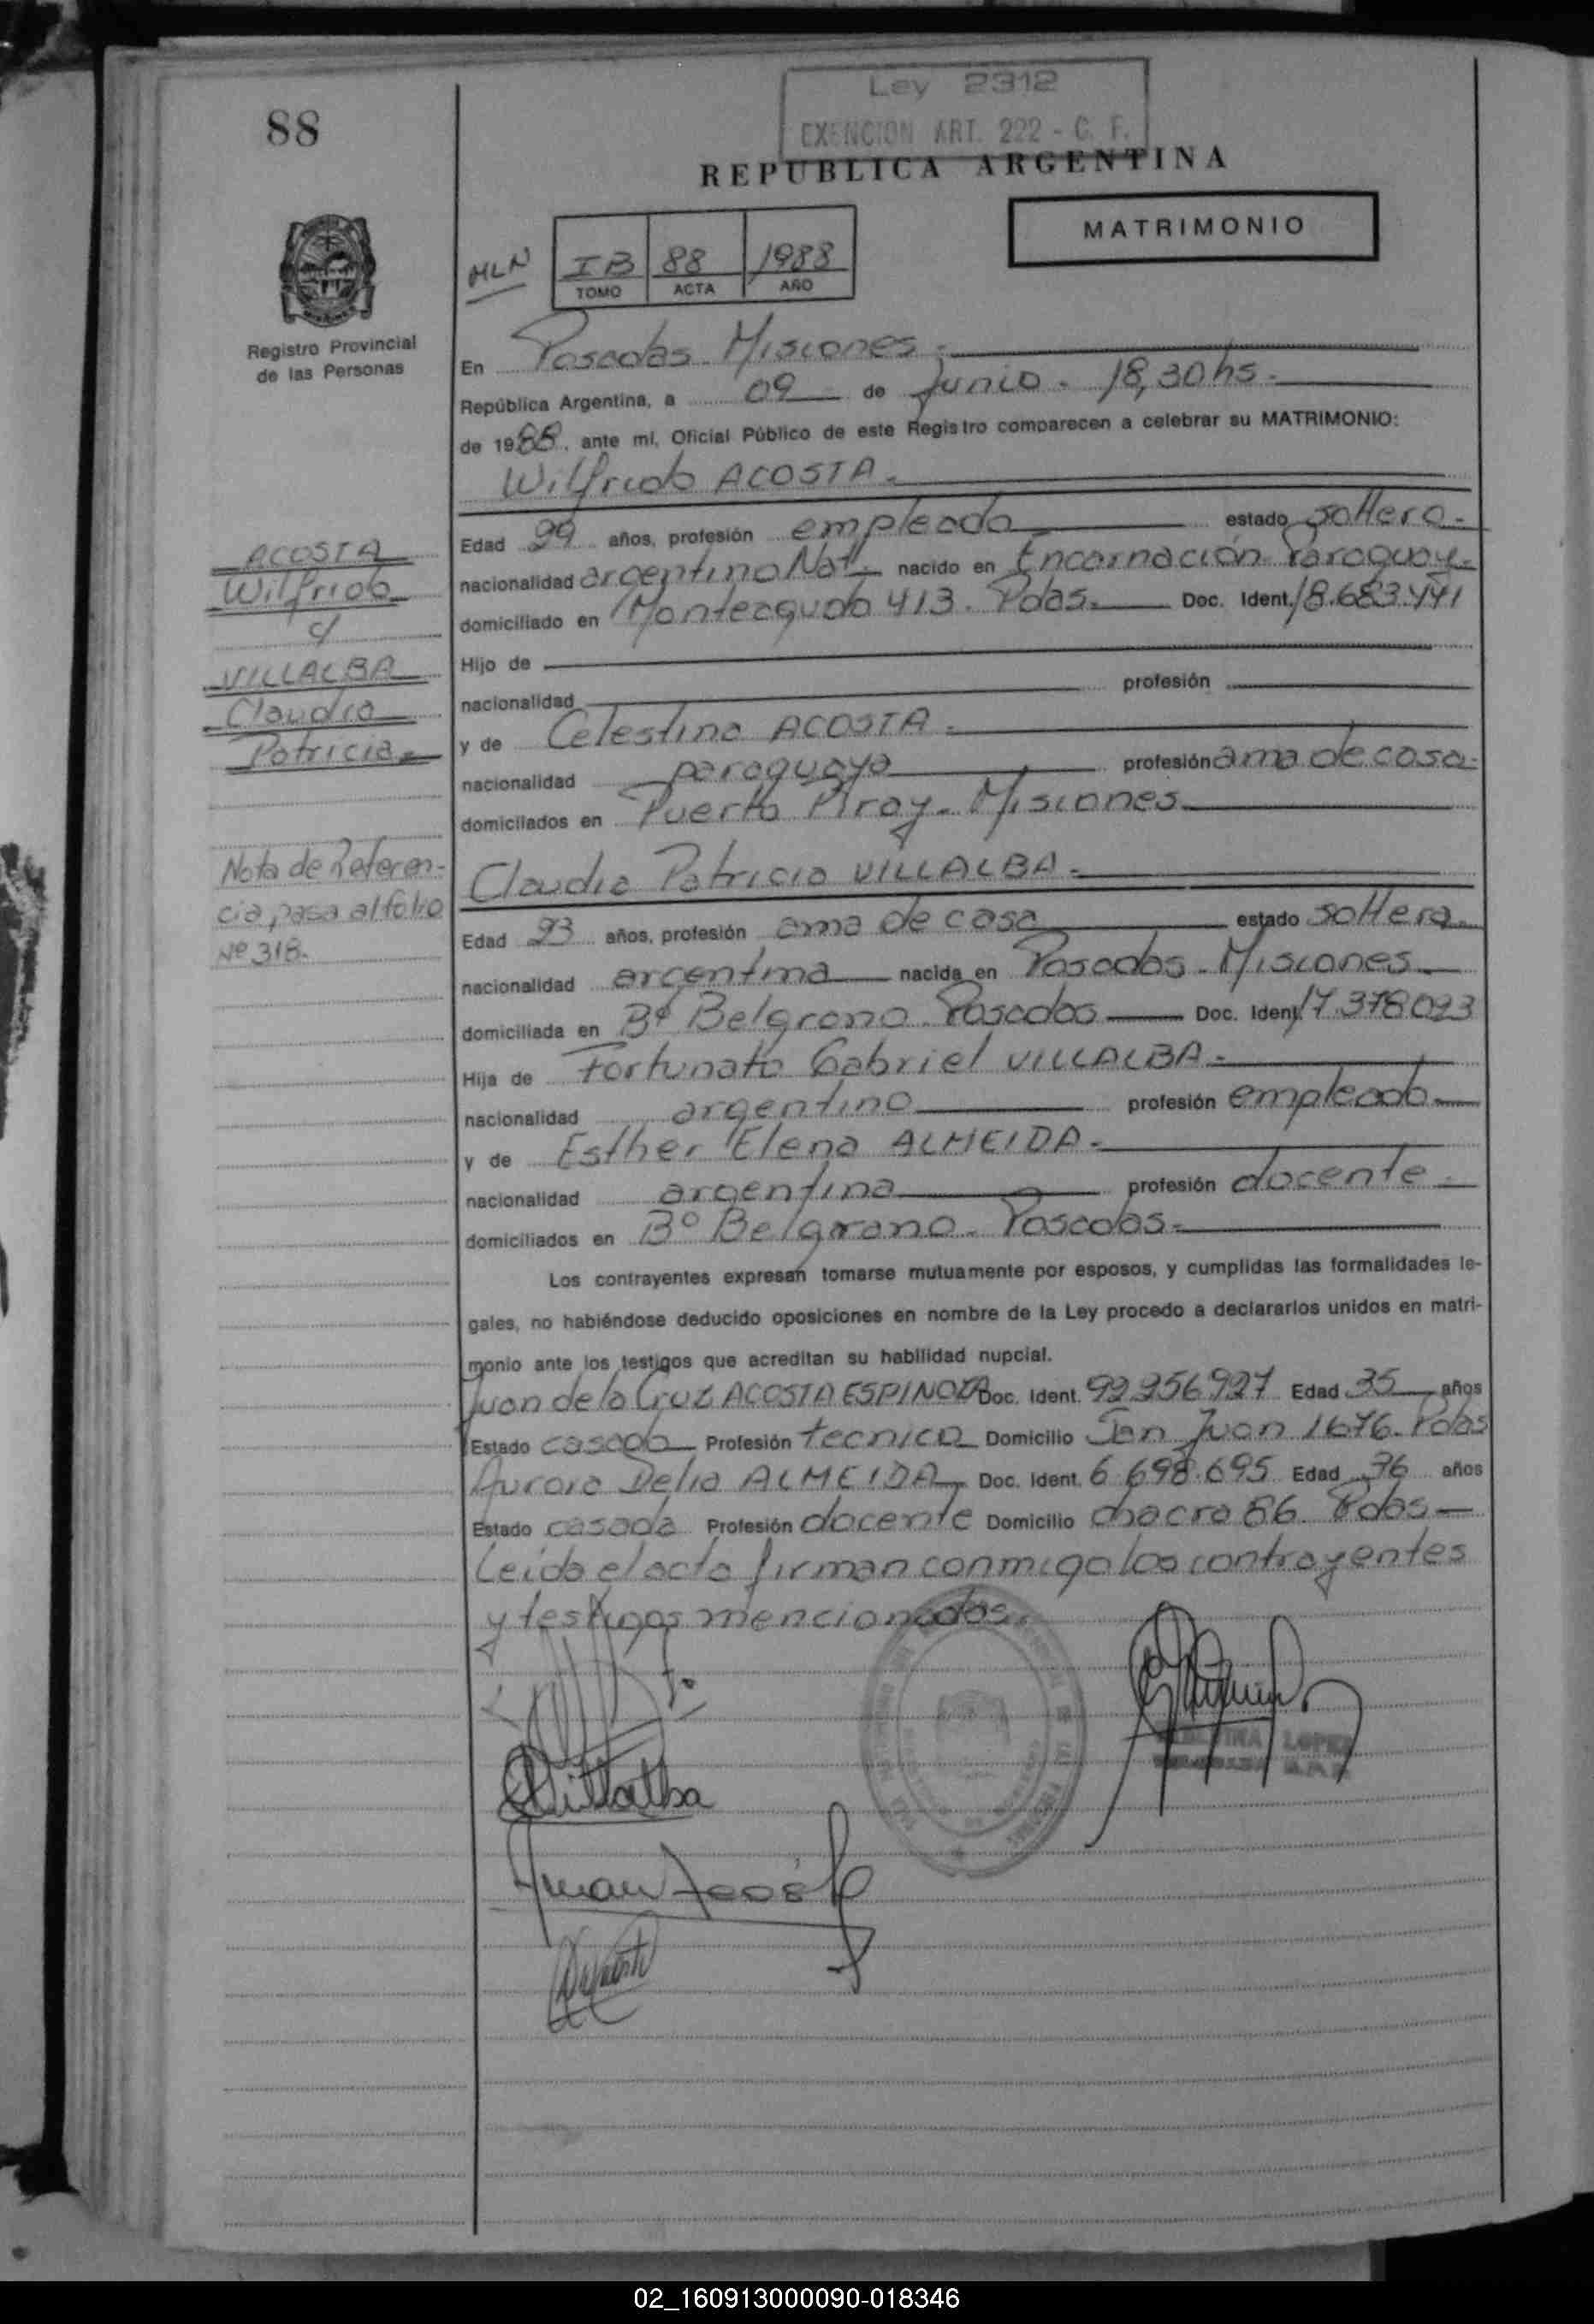 88
Ley 2312
EXENCION ART. 222 - C. F.
REPUBLICA ARGENTINA
MATRIMONIO
MLN
IB 88 1988
TOMO ACTA AÑO
Registro Provincial
de las Personas
En Posadas. Misiones.
República Argentina, a 09 de Junio. 18,30 hs.
de 1988, ante mi, Oficial Público de este Registro comparecen a celebrar su MATRIMONIO:
Wilfrido ACOSTA.
Edad 29 años, profesión empleado estado soltero.
nacionalidad argentino Nat. nacido en Encarnación Paraguay.
domiciliado en Monteagudo 413. Pdas. Doc. Ident. 18.683.441
Hijo de
nacionalidad profesión
y de Celestina ACOSTA.
nacionalidad paraguaya profesión ama de casa.
domicilados en Puerto Piray. Misiones
Claudia Patricia VILLALBA.
Edad 23 años, profesión ama de casa estado soltera.
nacionalidad argentina nacida en Posadas. Misiones.
domiciliada en Bº Belgrano Posadas Doc. Ident. 17.378023
Hija de Fortunato Gabriel VILLALBA.
nacionalidad argentino profesión empleado
y de Esther Elena ALMEIDA.
nacionalidad argentina profesión docente.
domiciliados en Bº Belgrano. Posadas.
Los contrayentes expresan tomarse mutuamente por esposos, y cumplidas las formalidades le-
gales, no habiéndose deducido oposiciones en nombre de la Ley procedo a declararlos unidos en matri-
monio ante los testigos que acreditan su habilidad nupcial.
Juan de la Cruz ACOSTA ESPINOZA Doc. Ident. 92256927 Edad 35 años
Estado casado Profesión tecnico Domicilio San Juan 1676. Pdas
Aurora Delia ALMEIDA Doc. Ident. 6.698.695 Edad 36 años
Estado casada Profesión docente Domicilio chacra 86. Pdas
Leida el acta firman conmigo los contrayentes
y testigos mencionados.
LOPEZ
Villalba
Juan Acosta
ACOSTA
Wilfrido
c/
VILLALBA
Claudia
Patricia
Nota de Referen-
cia, pasa al folio
Nº 318.
02_160913000090-018346